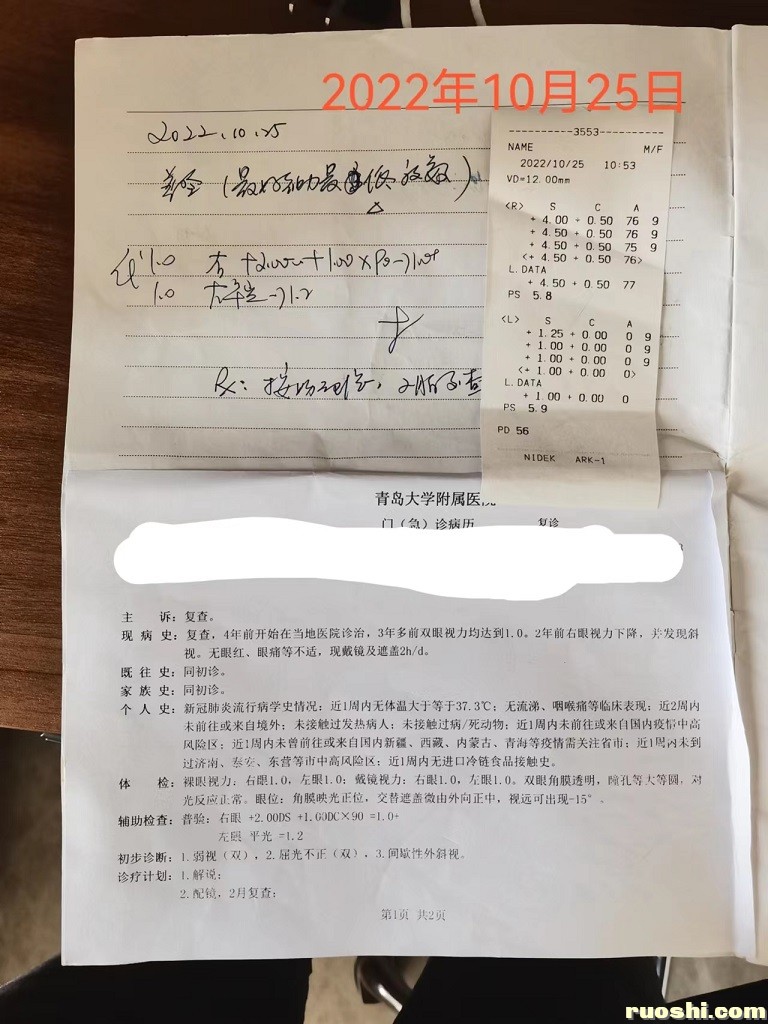 2022年10月25日
2022.10.25
(最好和最低度数)
1.0 右 +2.00 +1.00×90→1.0+
1.0 左平光→1.2
Rx: 2月复查
----------3553----------
NAME M/F
2022/10/25 10:53
VD=12.00mm
<R> S C A
+ 4.00 + 0.50 76 9
+ 4.50 + 0.50 76 9
+ 4.50 + 0.50 75 9
<+ 4.50 + 0.50 76>
L.DATA
+ 4.50 + 0.50 77
PS 5.8
<L> S C A
+ 1.25 + 0.00 0 9
+ 1.00 + 0.00 0 9
+ 1.00 + 0.00 0 9
<+ 1.00 + 0.00 0>
L.DATA
+ 1.00 + 0.00 0
PS 5.9
PD 56
NIDEK ARK-1
青岛大学附属医院
门(急)诊病历 复诊
主 诉:复查。
现 病 史:复查,4年前开始在当地医院诊治,3年多前双眼视力均达到1.0。2年前右眼视力下降,并发现斜
视。无眼红、眼痛等不适,现戴镜及遮盖2h/d。
既 往 史:同初诊。
家 族 史:同初诊。
个 人 史:新冠肺炎流行病学史情况:近1周内无体温大于等于37.3℃;无流涕、咽喉痛等临床表现;近2周内
未前往或来自境外;未接触过发热病人;未接触过病/死动物;近1周内未前往或来自国内疫情中高
风险区;近1周内未曾前往或来自国内新疆、西藏、内蒙古、青海等疫情需关注省市;近1周内未到
过济南、泰安、东营等市中高风险区;近1周内无进口冷链食品接触史。
体 检:裸眼视力:右眼1.0,左眼1.0;戴镜视力:右眼1.0,左眼1.0。双眼角膜透明,瞳孔等大等圆,对
光反应正常。眼位:角膜映光正位,交替遮盖微由外向正中,视远可出现-15°。
辅助检查:普验:右眼 +2.00DS +1.00DC×90 =1.0+
左眼 平光 =1.2
初步诊断:1.弱视(双),2.屈光不正(双),3.间歇性外斜视。
诊疗计划:1.解说;
2.配镜,2月复查;
第1页 共2页
ruoshi.com